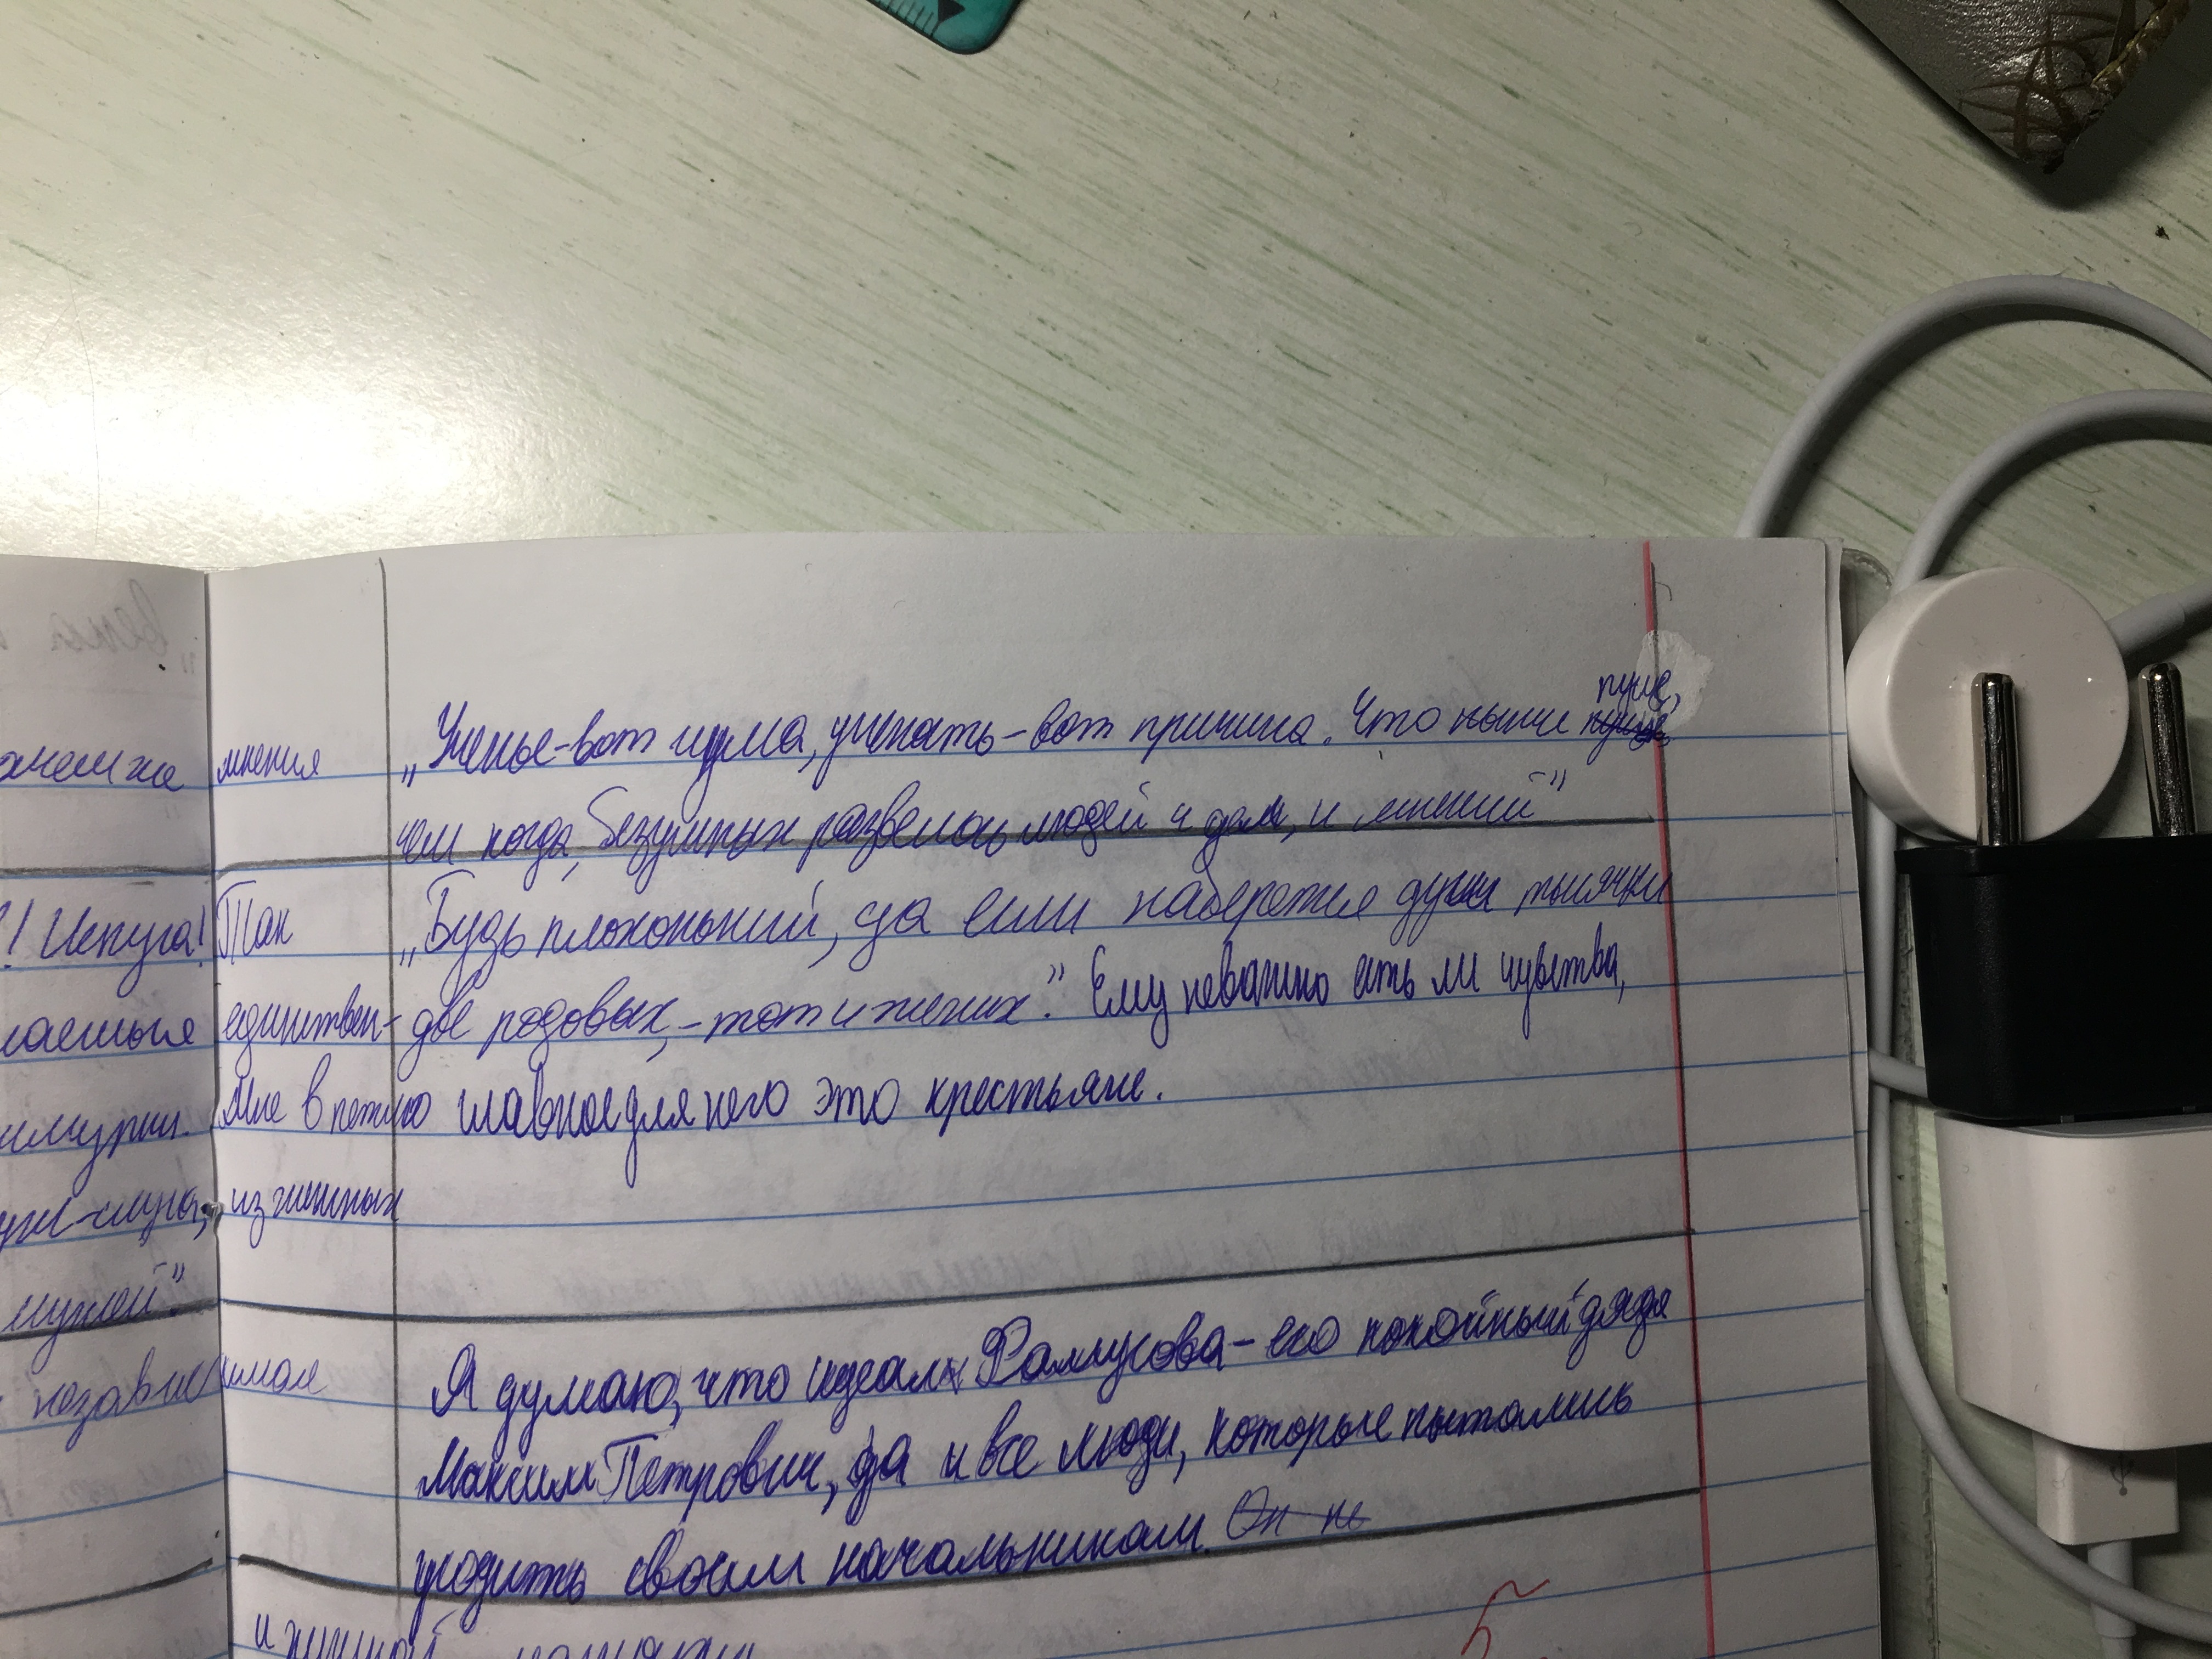 пуще,
„Ученье-вот чума, ученость-вот причина. Что нынче
чем когда, безумных развелось людей и дел, и мнений"
„Будь плохонький, да если наберется душ тысячки
две родовых,-тот и жених." Ему неважно есть ли чувства,
главное для него это крестьяне.
Я думаю, что идеал Фамусова-его покойный дядя
Максим Петрович, да и все люди, которые пытались
угодить своим начальникам. Он не
мнения
! Испуга! Так
единствен-
Мне в петлю
из жениных
мужей."
незави симая
5